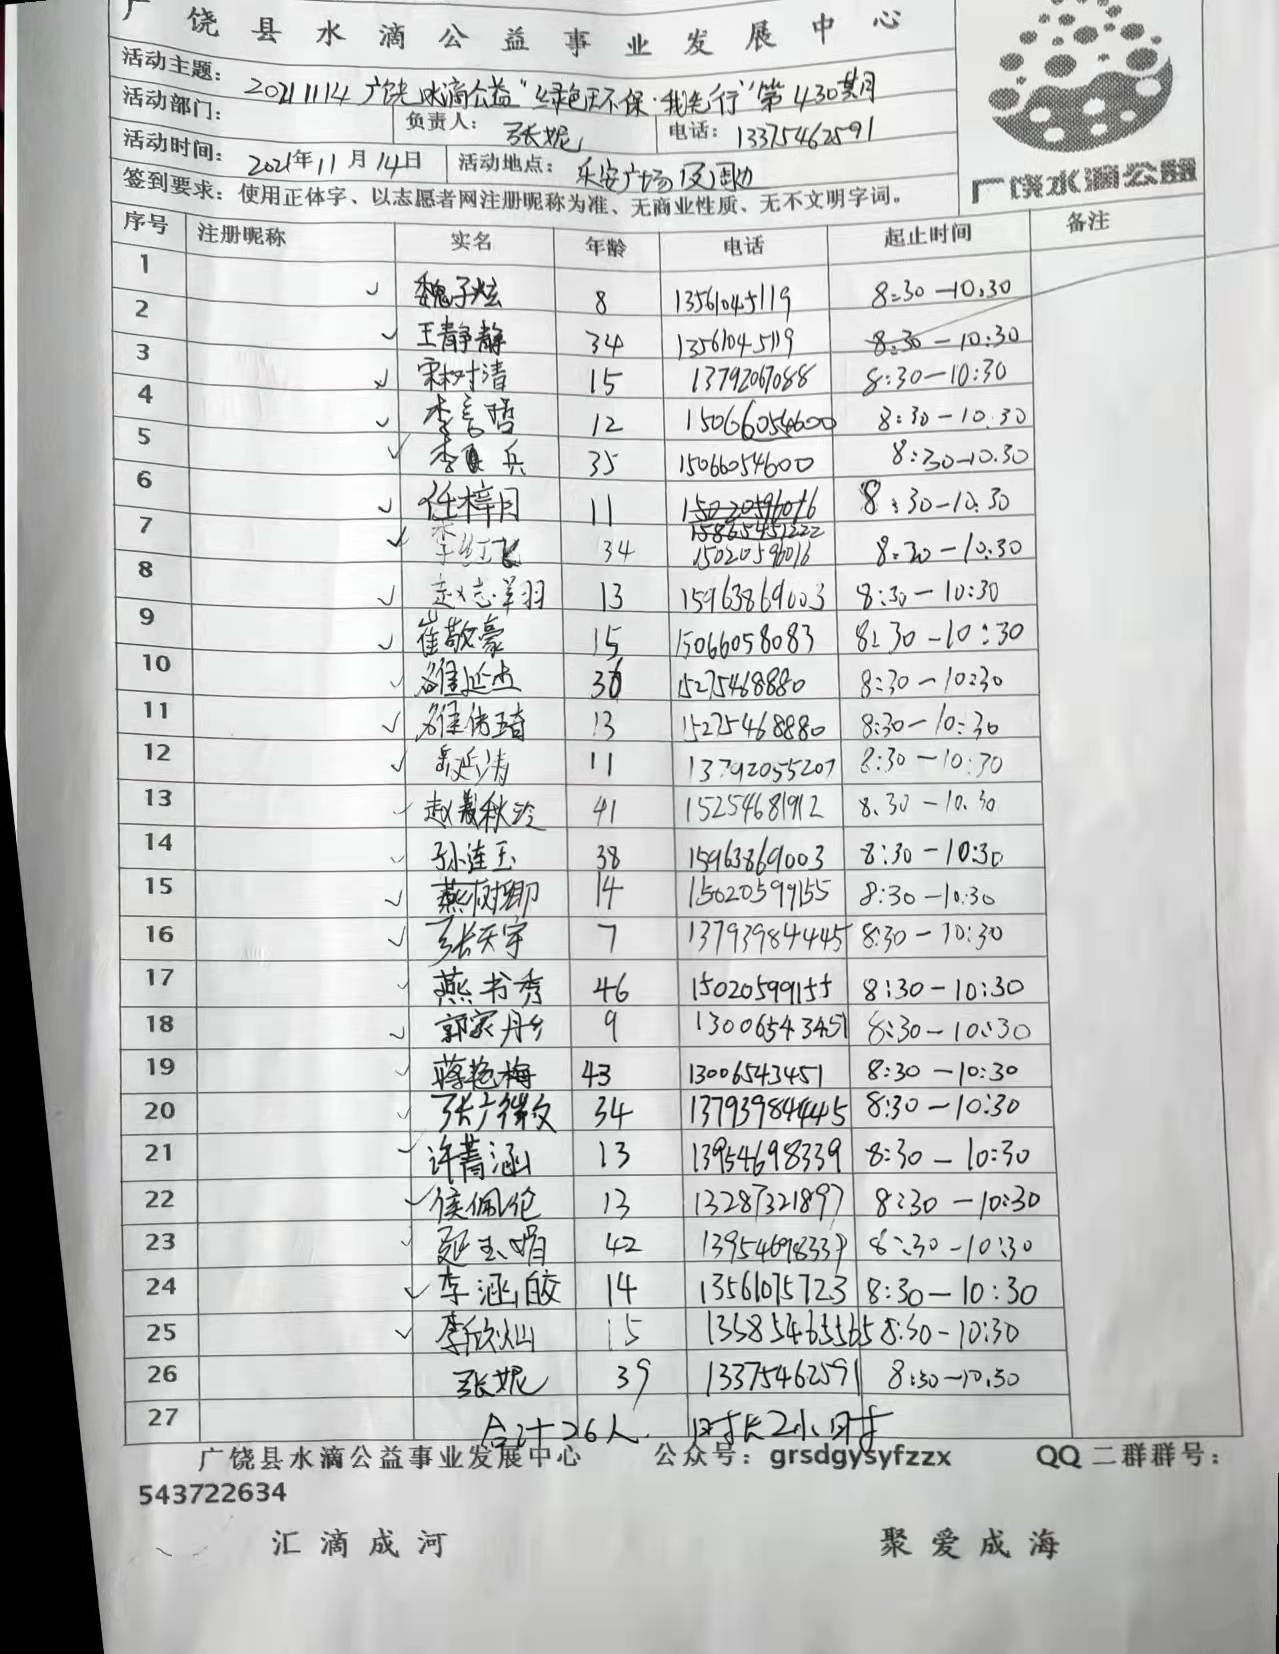 广饶县水滴公益事业发展中心
活动主题: 20211114广饶水滴公益"绿色环保·我先行"第430期
活动部门: 负责人: 张妮 电话: 13375462591
活动时间: 2021年11月14日 活动地点: 乐安广场及周边
签到要求: 使用正体字、以志愿者网注册昵称为准、无商业性质、无不文明字词。
广饶水滴公益
序号 注册昵称 实名 年龄 电话 起止时间 备注
1 ✓ 魏子炫 8 13561045119 8:30-10:30
2 ✓ 王静静 34 13561045119 8:30-10:30
3 ✓ 宋树清 15 13792067088 8:30-10:30
4 ✓ 李言哲 12 15066054600 8:30-10:30
5 ✓ 李 兵 35 15066054600 8:30-10:30
6 ✓ 任梓月 11 15020596016 8:30-10:30
7 ✓ 李红飞 34 15865451222 15020596016 8:30-10:30
8 ✓ 赵志羽 13 15963869003 8:30-10:30
9 ✓ 崔敬豪 15 15066058083 8:30-10:30
10 ✓ 延杰 36 15275468880 8:30-10:30
11 ✓ 琦 13 15275468880 8:30-10:30
12 ✓ 延涛 11 13792055207 8:30-10:30
13 ✓ 赵秋玲 41 15254681912 8:30-10:30
14 ✓ 孙连玉 38 15963869003 8:30-10:30
15 ✓ 燕树卿 14 15020599155 8:30-10:30
16 ✓ 张天宇 7 13793984445 8:30-10:30
17 ✓ 燕书秀 46 15020599155 8:30-10:30
18 ✓ 郭家彤 9 13006543451 8:30-10:30
19 ✓ 蒋艳梅 43 13006543451 8:30-10:30
20 ✓ 张广徽 34 13793984445 8:30-10:30
21 ✓ 许菁涵 13 13954698339 8:30-10:30
22 ✓ 侯佩伦 13 13287321897 8:30-10:30
23 ✓ 延玉娟 42 13954698339 8:30-10:30
24 ✓ 李涵皎 14 13561075723 8:30-10:30
25 ✓ 李欣灿 15 13385465565 8:30-10:30
26 张妮 39 13375462591 8:30-10:30
27 合计26人 时长2小时
广饶县水滴公益事业发展中心 公众号: grsdgysyfzzx QQ二群群号:
543722634
汇滴成河 聚爱成海